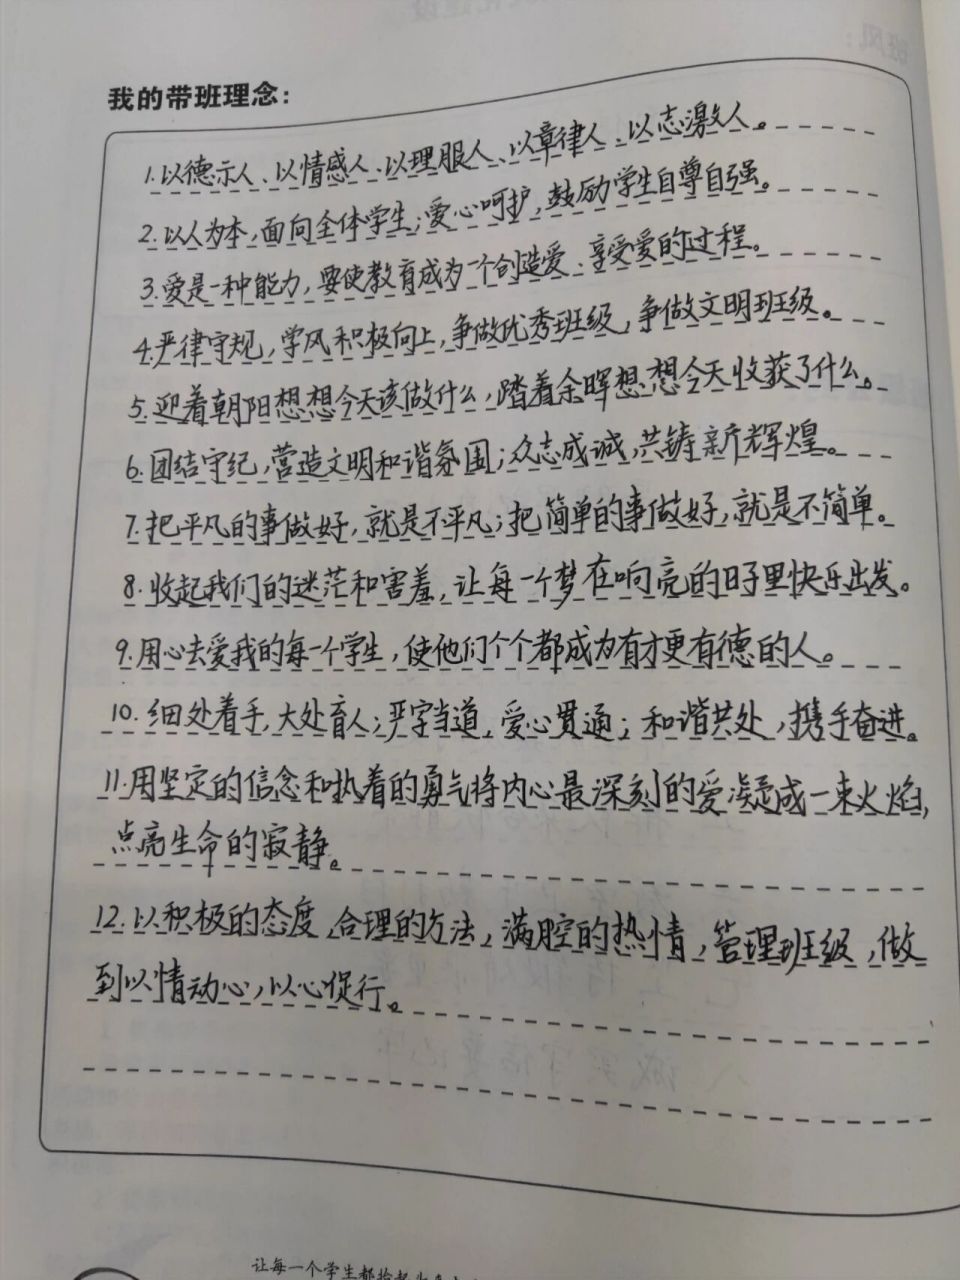 我的带班理念:
1.以德示人、以情感人、以理服人、以章律人、以志激人。
2.以人为本,面向全体学生;爱心呵护,鼓励学生自尊自强。
3.爱是一种能力,要使教育成为一个创造爱、享受爱的过程。
4.严律守规,学风积极向上,争做优秀班级,争做文明班级。
5.迎着朝阳想想今天该做什么,踏着余晖想想今天收获了什么。
6.团结守纪,营造文明和谐氛围;众志成诚,共铸新辉煌。
7.把平凡的事做好,就是不平凡;把简单的事做好,就是不简单。
8.收起我们的迷茫和害羞,让每一个梦在响亮的日子里快乐出发。
9.用心去爱我的每一个学生,使他们个个都成为有才更有德的人。
10.细处着手,大处育人;严字当道,爱心贯通;和谐共处,携手奋进。
11.用坚定的信念和执着的勇气将内心最深刻的爱凝成一束火焰,
点亮生命的寂静。
12.以积极的态度,合理的方法,满腔的热情,管理班级,做
到以情动心,以心促行。
让每一个学生都抬起头来